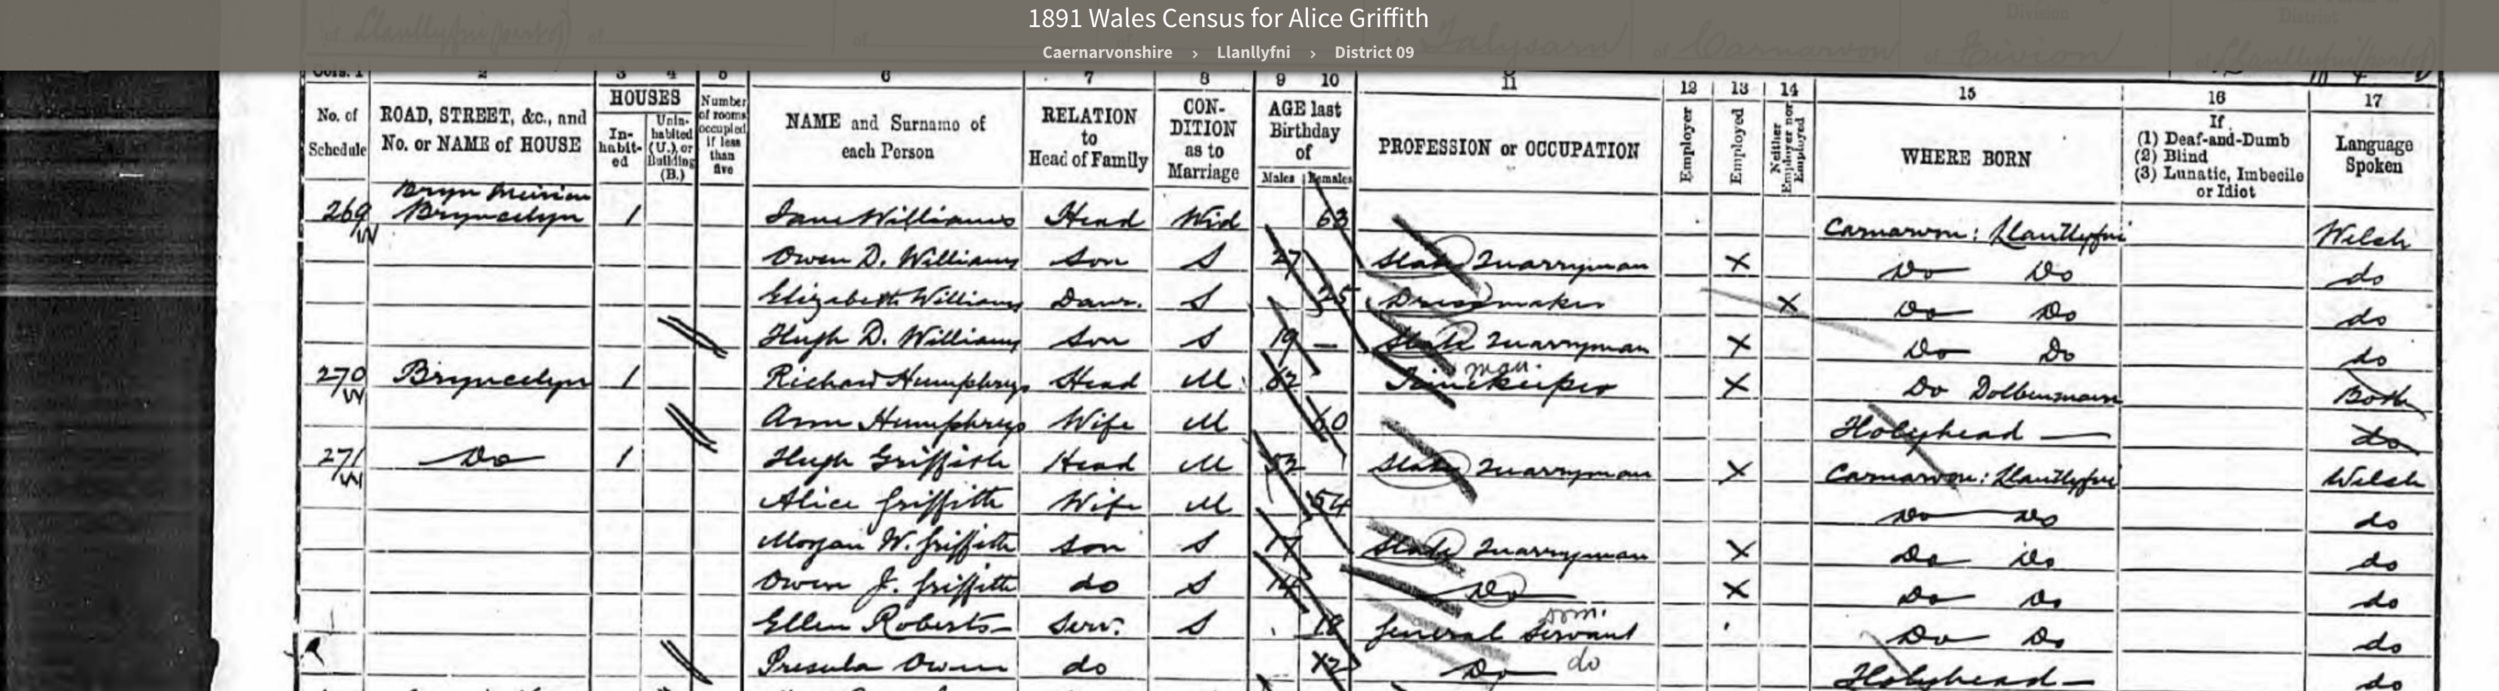 1891 Wales Census for Alice Griffith
Caernarvonshire › Llanllyfni › District 09
Cols. 1 2 3 4 5 6 7 8 9 10 11 12 13 14 15 16 17
No. of Schedule
ROAD, STREET, &c., and No. or NAME of HOUSE
HOUSES
In-habit-ed
Unin-habited (U.), or Building (B.)
Number of rooms occupied if less than five
NAME and Surname of each Person
RELATION to Head of Family
CON-DITION as to Marriage
AGE last Birthday of
Males Females
PROFESSION or OCCUPATION
Employer
Employed
Neither Employer nor Employed
WHERE BORN
If (1) Deaf-and-Dumb (2) Blind (3) Lunatic, Imbecile or Idiot
Language Spoken
Bryn Meirion
269 Bryncelyn 1 Jane Williams Head Wid 63 Carnarvon: Llanllyfni Welsh
Owen D. Williams Son S 27 Slate Quarryman X Do Do do
Elizabeth Williams Daur. S 25 Dressmaker X Do Do do
Hugh D. Williams Son S 19 — Slate Quarryman X Do Do do
270 Bryncelyn 1 Richard Humphreys Head M Timekeeper X Do Both
Ann Humphreys Wife M 60 Holyhead — do
271 Do 1 Hugh Griffith Head M Slate Quarryman X Carnarvon: Llanllyfni Welsh
Alice Griffith Wife M 54 Do Do do
Morgan W. Griffith Son S 17 Slate Quarryman X Do Do do
Owen J. Griffith do S 14 Do X Do Do do
Ellen Roberts Serv. S 18 General Servant Do Do do
Owen do Do do Holyhead — do